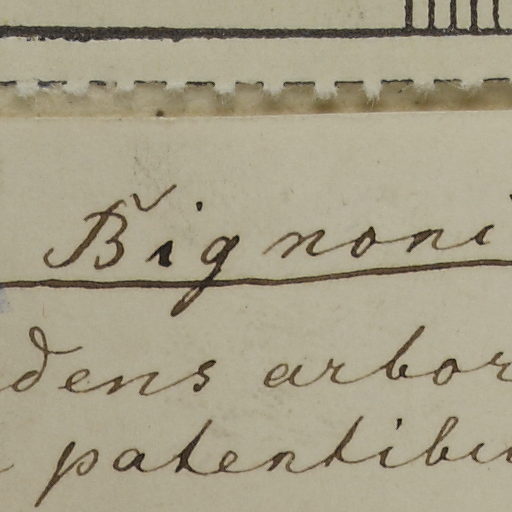 Bignoni
dens arbor
patentibu